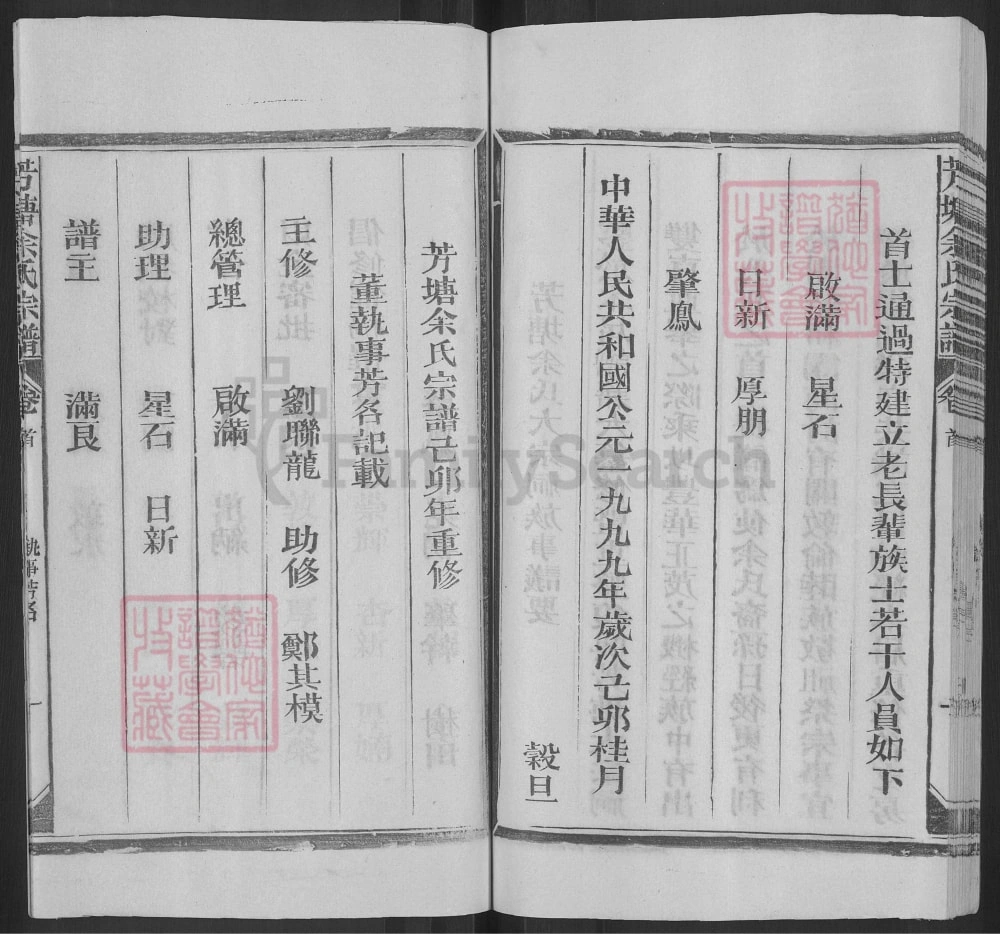 芳塘余氏宗譜 卷首
首士通過特建立老長輩族士若干人員如下
啟滿 星石
日新 厚朋
肇鳳
中華人民共和國公元一九九九年歲次己卯桂月
穀旦
芳塘余氏宗譜己卯年重修
董執事芳名記載
主修 劉聯龍 助修 鄭其模
總管理 啟滿
助理 星石 日新
譜主 滿艮
芳塘余氏宗譜 卷首 執事芳名 一
FamilySearch